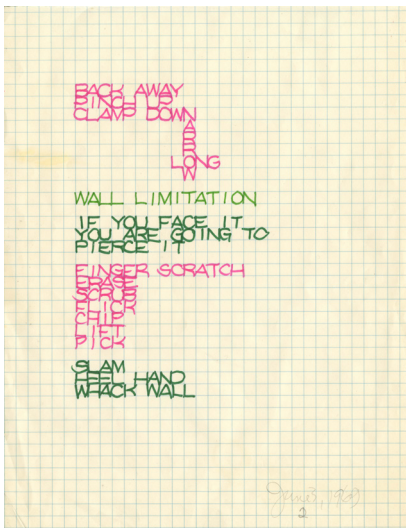 BACK AWAY
CLAMP DOWN
A
R
R
LONG
W
WALL LIMITATION
IF YOU FACE IT
YOU ARE GOING TO
PIERCE IT
FINGER SCRATCH
ERASE
SCRUB
FLICK
CHIP
LIFT
PICK
SLAM
HEEL HAND
WHACK WALL
2